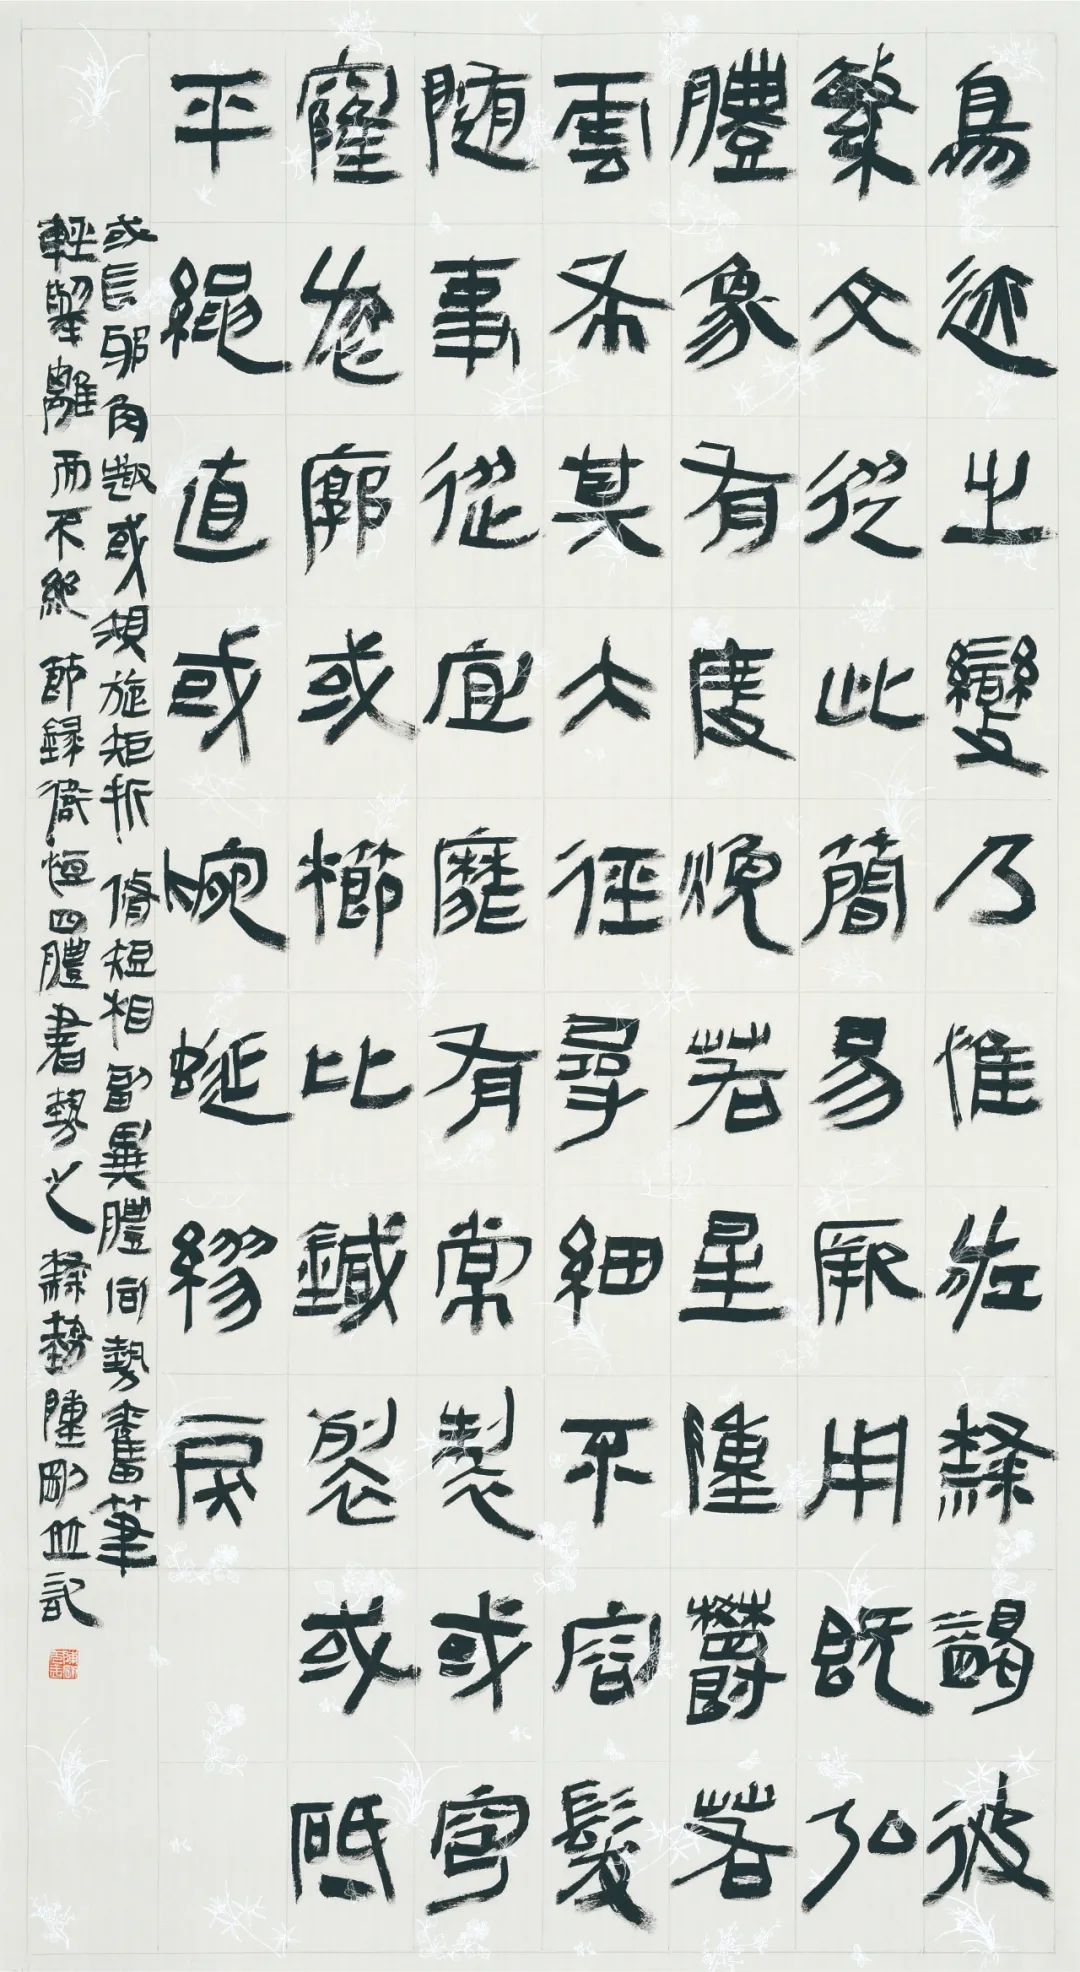 鳥迹之變乃惟佐隸蠲彼
繁文從此簡易厥用既弘
體象有度煥若星陳鬱若
雲布其大徑尋細不容髮
隨事從宜靡有常製或穹
窿恢廓或櫛比鍼裂或砥
平繩直或蜿蜒繆戾
或長邪角趣或規旋矩折脩短相副異體同勢奮筆
輕舉離而不絕節錄衛恒四體書勢之隸勢陳剛並記